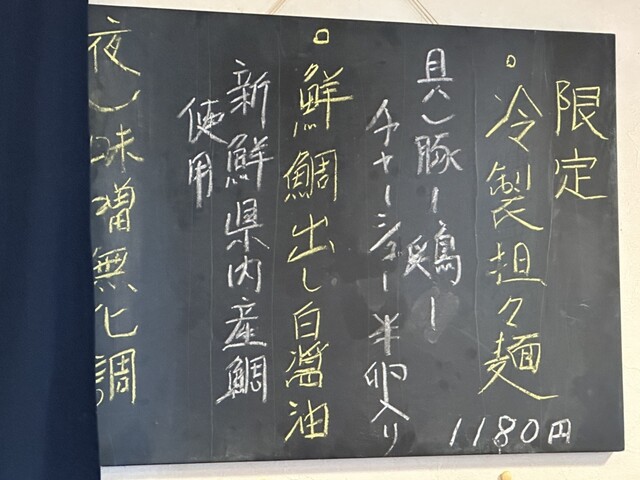 限定
。冷製担々麺
1180円
具い豚ー鶏ー
チャーシュー半卵入り
。鮮鯛出し白醤油
新鮮県内産鯛
使用
夜い味噌無化調